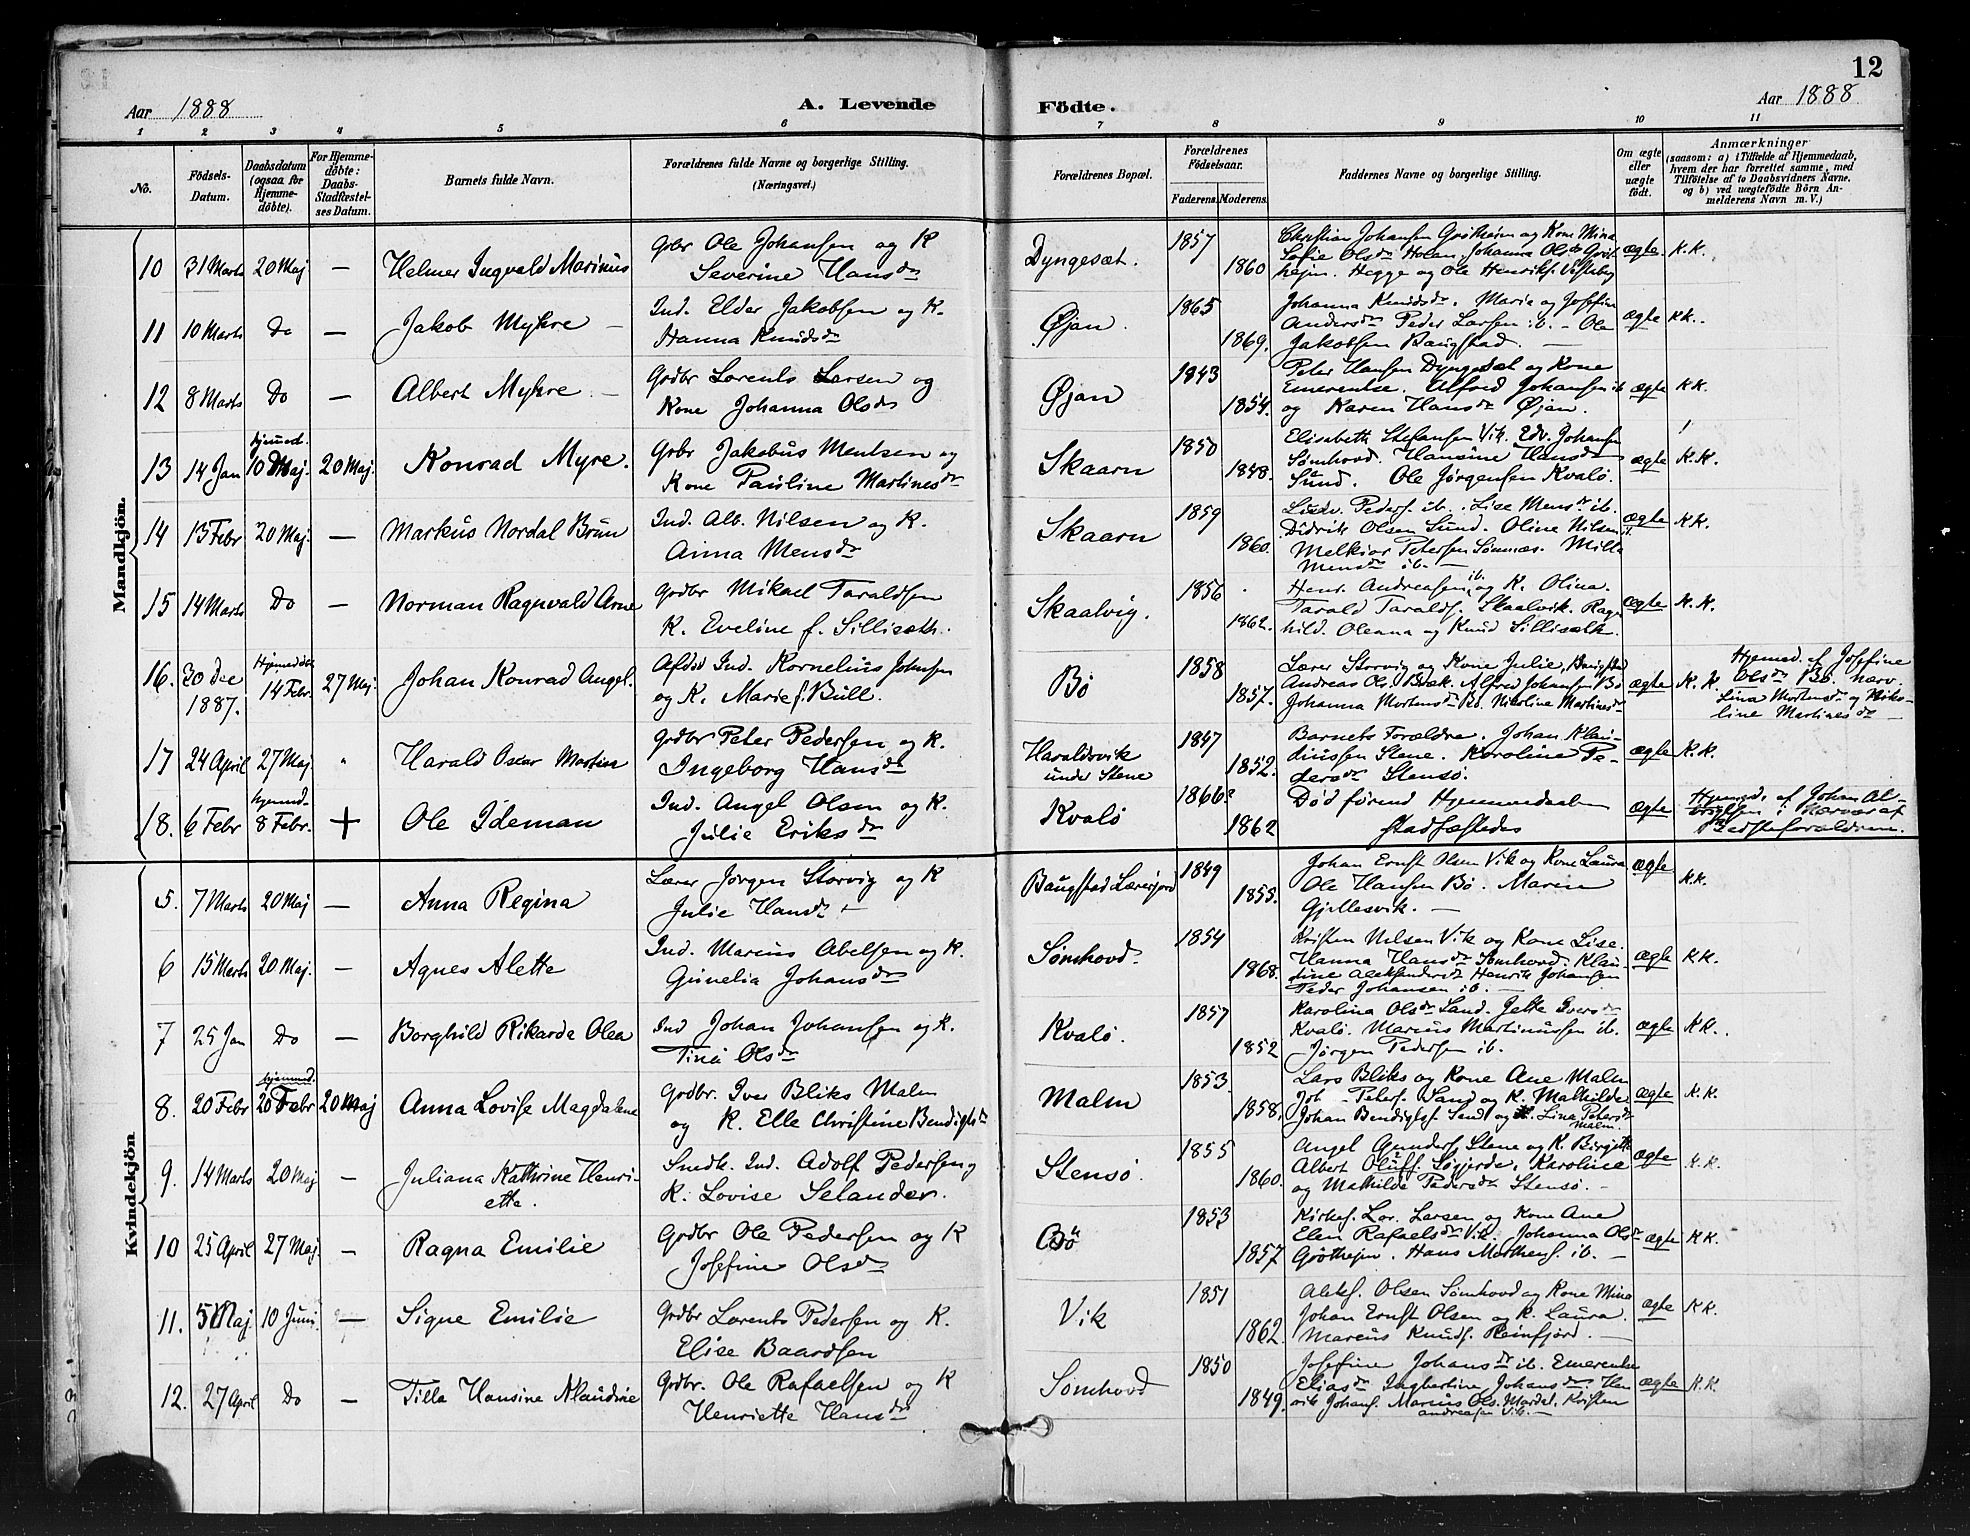 12
Aar 1888 A. Levende Födte. Aar 1888
1 2 3 4 5 6 7 8 9 10 11
No.
Födsels-Datum.
Daabsdatum (ogsaa for Hjemmedöbte).
For Hjemmedöbte: Daabs-Stadfæstelses Datum.
Barnets fulde Navn.
Forældrenes fulde Navne og borgerlige Stilling. (Næringsvei.)
Forældrenes Bopæl.
Forældrenes Födselsaar.
Faderens. Moderens.
Faddernes Navne og borgerlige Stilling.
Om ægte eller uægte födt.
Anmærkninger (saasom: a) i Tilfælde af Hjemmedaab, hvem der har forrettet samme, med Tilföielse af to Daabsvidners Navne, og b) ved uægtefödte Börn Anmelderens Navn m. V.)
Mandkjön.
10 31 Marts 20 Maj — Helmer Ingvald Marinus Gdbr Ole Johansen og K Severine Hansdr Dyngesæt. 1857 1860 Christian Johansen Grötheim og Kone Mina Sofie Olsdr Holan Johanna Olsdr Hegge og Ole Henriks. ægte K.K.
11 10 Marts Do — Jakob Myhre — Ind. Elder Jakobsen og K. Hanna Knudsdr Øjan. 1865 1869. Johanna Knudsdr. Marie og Josefine Andersdr Peder Larsen ib. – Ole Jakobsen Baugstad. — ægte KK.
12 8 Marts Do — Albert Myhre. — Gdbr Lorents Larsen og Kone Johanna Olsdr Øjan 1843 1854. Peter Hansen Dyngesæt og Kone Emerentse. Alfred Johansen ib og Karen Hansdr Øjan. ægte KK.
13 14 Jan hjemmed. 10 Maj. 20 Maj. Konrad Myre. Gdbr Jakobus Mentsen og Kone Pauline Martinesdr Skaarn 1850 1848. Elisabeth Stefansen Vik. Edv. Johansen Sömhovd. Hansine Hansdr Sund. Ole Jørgensen Kvalø. ægte K.K.
14 13 Febr 20 Maj. — Markus Nordal Brun Ind. Alb. Nilsen og K. Anna Mensdr Skaarn 1859 1860. Ludv. Peders. ib. Lise Mensdr ib. Didrik Olsen Sund. Oline Nilsen Melkior Petersen Sömnæs. Milla Mensdr ib. — ægte KK.
15 14 Marts Do — Norman Ragnvald Arne Gdbr Mikael Taraldsen K. Eveline f. Sillisæth. Skaalvig. 1856 1862. Henr. Andreasen ib. og K. Olina. Tarald Taralds. Skaalvik. Ragnhild. Oleana og Knud Sillisæth. ægte K.K.
16. 30 Dec 1887. Hjemmedöbt 14 Febr. 27 Maj Johan Konrad Angel. Afdød Ind. Kornelius Johnsen og K. Marie f. Bull. Bø 1858 1857. Lærer Storvig og Kone Julie, Baugstad Andreas Ols. Alfred Johansen Bø Johanna Mortensdr Bø. Nicoline Martinesdr ægte K.K. Hjemmed. af Josefine Olsdr Bø. nærv. Lina Mortensdr og Nikoline Martinesdr —
17 24 April 27 Maj. " Harald Oscar Martin Gdbr Peter Pedersen og K. Ingeborg Hansdr Haraldsvik under Stene 1847 1852. Barnets Forældre. Johan Klaudiussen Stene. Karoline Pedersdr Stensö. ægte K.K.
18. 6 Febr hjemmed. 8 Febr. + Ole Ideman Ind. Angel Olsen og K. Julie Eriksdr Kvalø 1866? 1862 Død førend Hjemmedaaben stadfæstedes ægte Hjemmed. af Johan i Nærvær af Bedsteforældrene.
Kvindekjön
5. 7 Marts 20 Maj — Anna Regina Lærer Jørgen Storvig og K Julie Hansdr Baugstad Lærerjord 1849 1853. Johan Ernst Olsen Vik og Kone Laura Ole Hansen Bø. Maren Gjellesvik. — ægte K.K.
6 15 Marts 20 Maj. — Agnes Alette Ind. Marius Abelsen og K. Gunelia Johansdr Sömhovd. 1854 1868. Kristen Nilsen Vik og Kone Lise. Hanna Hansdr Sömhovd. Klaudine Aleksandersdr Henrik Johansen Peder Johansen ib. — ægte KK.
7 25 Jan Do — Borghild Rikarda Olea Ind Johan Johansen og K. Tina Olsdr Kvalø. 1857 1852 Karolina Olsdr Sand. Jette Iversdr Kvalø. Marius Martinussen ib. Jørgen Pedersen ib. ægte KK.
8. 20 Febr hjemmed. 20 Febr 20 Maj Anna Lovise Magdalene Godbr. Iver Bliks Malm og K. Elle Christine Bendigtsdr Malm 1853. 1858. Lars Bliks og Kone Ane Malm Job Peters. Sand og K. Mathilde Johan Bendigts. Sand og K. Lina Petersdr Malm ægte K.K.
9. 14 Marts 20 Maj — Juliana Kathrine Henriette. Smdk. Ind. Adolf Pedersen og K. Lovise Selander. Stensö. 1855 1860. Angel Gunders. Stene og K. Birgitte Albert Olufs. Søgjerde. Karoline og Mathilde Pedersdr Stensö. — ægte K.K.
10 25 April 27 Maj. — Ragna Emilie Gdbr Ole Pedersen og K Josefine Olsdr Bö 1853 1857 Kirkes. Lor. Larsen og Kone Ane Elen Rafaelsdr Vik. Johanna Olsdr Gröthejm. Hans Mathens. ib. — ægte KK.
11. 5 Maj. 10 Juni. — Signe Emilie Gdbr Lorents Pedersen og K. Elise Baardsen Vik 1851 1862. Aleks. Olsen Sömhovd og Kone Mina Johan Ernst Olsen og K. Laura. Marcus Knuds. Reinfjord. — ægte KK.
12. 27 April Do — Tilla Hansine Klaudine Gdbr. Ole Rafaelsen og K Henriette Hansdr Sömhovd 1850 1849. Josefine Johansdr ib. Emerentse Eliasdr Ingbertine Johansdr. Henrik Johans. Marius Ols. Mardal. Kristen Andreasen Vik. — ægte K.K.